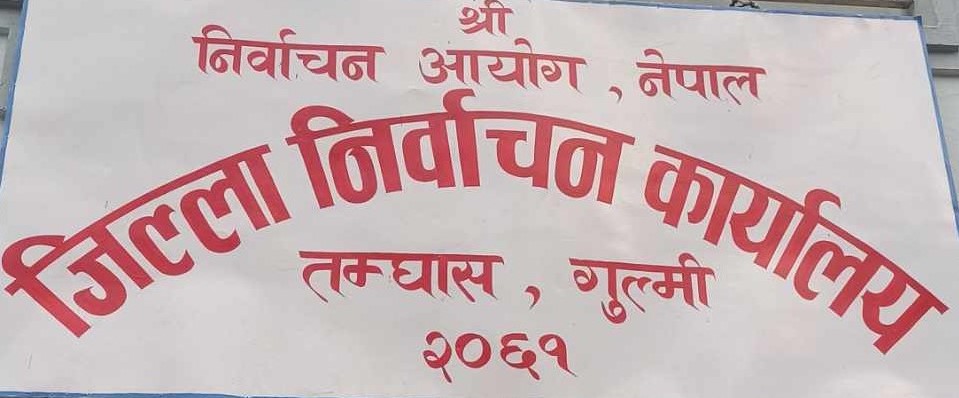 श्री
निर्वाचन आयोग , नेपाल
जिल्ला निर्वाचन कार्यालय
तम्घास , गुल्मी
२०६१